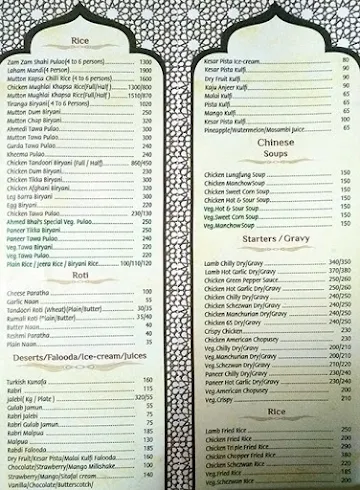 Rice
Zam Zam Shahi Pulao(4 to 6 persons) 1300
Laham Mandi(4 Person) 1900
Mutton Kapsa Chilli Rice (4 to 6 persons) 1600
Chicken Mughlai Khapsa Rice(Full/Half) 1300/800
Mutton Mughlai Khapsa Rice(Full/Half) 1510/870
Tiranga Biryani( 4 to 6 Persons) 1020
Mutton Dum Biryani 250
Mutton Chap Biryani 320
Ahmedi Tawa Pulao 300
Mutton Tawa Pulao 300
Gurda Tawa Pulao 240
Kheema Pulao 240
Chicken Tandoori Biryani (Full / Half) 860/450
Chicken Dum Biryani 230
Chicken Tikka Biryani 300
Chicken Afghani Biryani 300
Leg Barra Biryani 300
Egg Biryani 220
Chicken Tawa Pulao 230/130
Ahmed Bhai's Special Veg. Pulao 250
Paneer Tikka Biryani 250
Paneer Tawa Pulao 240
Veg.Tawa Biryani 220
Veg.Tawa Pulao 220
Plain Rice / Jeera Rice / Biryani Rice 100/110/120
Roti
Cheese Paratha 100
Garlic Naan 55
Tandoori Roti (Wheat)(Plain/Butter) 30/35
Rumali Roti (Plain/Butter) 35/40
Butter Naan 40
Reshmi Paratha 40
Plain Naan 35
Deserts/Falooda/Ice-cream/Juices
Turkish Kunafa 160
Rabri 115
Jalebi( Kg / Plate ) 320/55
Gulab Jamun 55
Rabri Jalebi 75
Gulab Jamun Rabri 75
Rabri Malpua 185
Malpua 130
Rabdi Falooda 185
Dry Fruit/Kesar Pista/Malai Kulfi Falooda 160
Chocolate/Strawberry/Mango Milkshake 100
Strawberry/Mango/Sitafal cream 140
Vanilla/Chocolate/Butterscotch/
Kesar Pista Ice-cream 80
Kesar Pista Kulfi 90
Dry Fruit Kulfi 90
Kaju Anjeer Kulfi 90
Malai Kulfi 65
Pista Kulfi 65
Mango Kulfi 65
Kesar Pista Kulfi 100
Pineapple/Watermelon/Mosambi Juice 65
Chinese
Soups
Chicken LungFung Soup 150
Chicken ManchowSoup 150
Chicken Sweet Corn Soup 150
Chicken Hot & Sour Soup 150
Veg.Hot & Sour Soup 150
Veg.Sweet Corn Soup 150
Veg.ManchowSoup 150
Starters / Gravy
Lamb Chilly Dry/Gravy 340/350
Lamb Hot Garlic Dry/Gravy 370/380
Chicken Green Pepper Sauce 250/260
Chicken Hot Garlic Dry/Gravy 250/260
Chicken Chilly Dry/Gravy 240/250
Chicken Schezwan Dry/Gravy 240/250
Chicken Manchurian Dry/Gravy 240/250
Chicken 65 Dry/Gravy 240/250
Crispy Chicken 230
Chicken American Chopusey 230
Veg.Chilly Dry/Gravy 200/210
Veg.Manchurian Dry/Gravy 200/210
Veg.Schezwan Dry/Gravy 210/220
Paneer Chilly Dry/Gravy 230/240
Paneer Hot Garlic Dry/Gravy 230/240
Veg.American Chopusey 200
Veg.Crispy 210
Rice
Lamb Fried Rice 250
Chicken Fried Rice
Chicken Triple Fried Rice
Chicken Chopper Fried Rice
Chicken Schezwan Rice 220
Veg.Fried Rice 185
Veg.Schezwan Rice 200